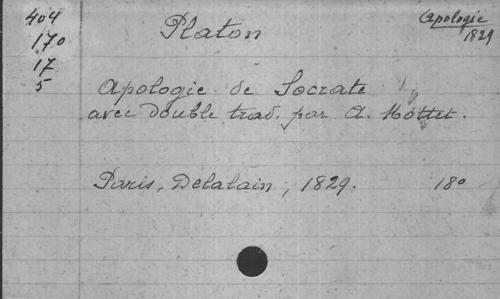 404
170
17
5
Platon
Apologie
1829
Apologie de Socrate
avec double trad. par A. Mottet.
Paris, Delalain, 1829. 18º